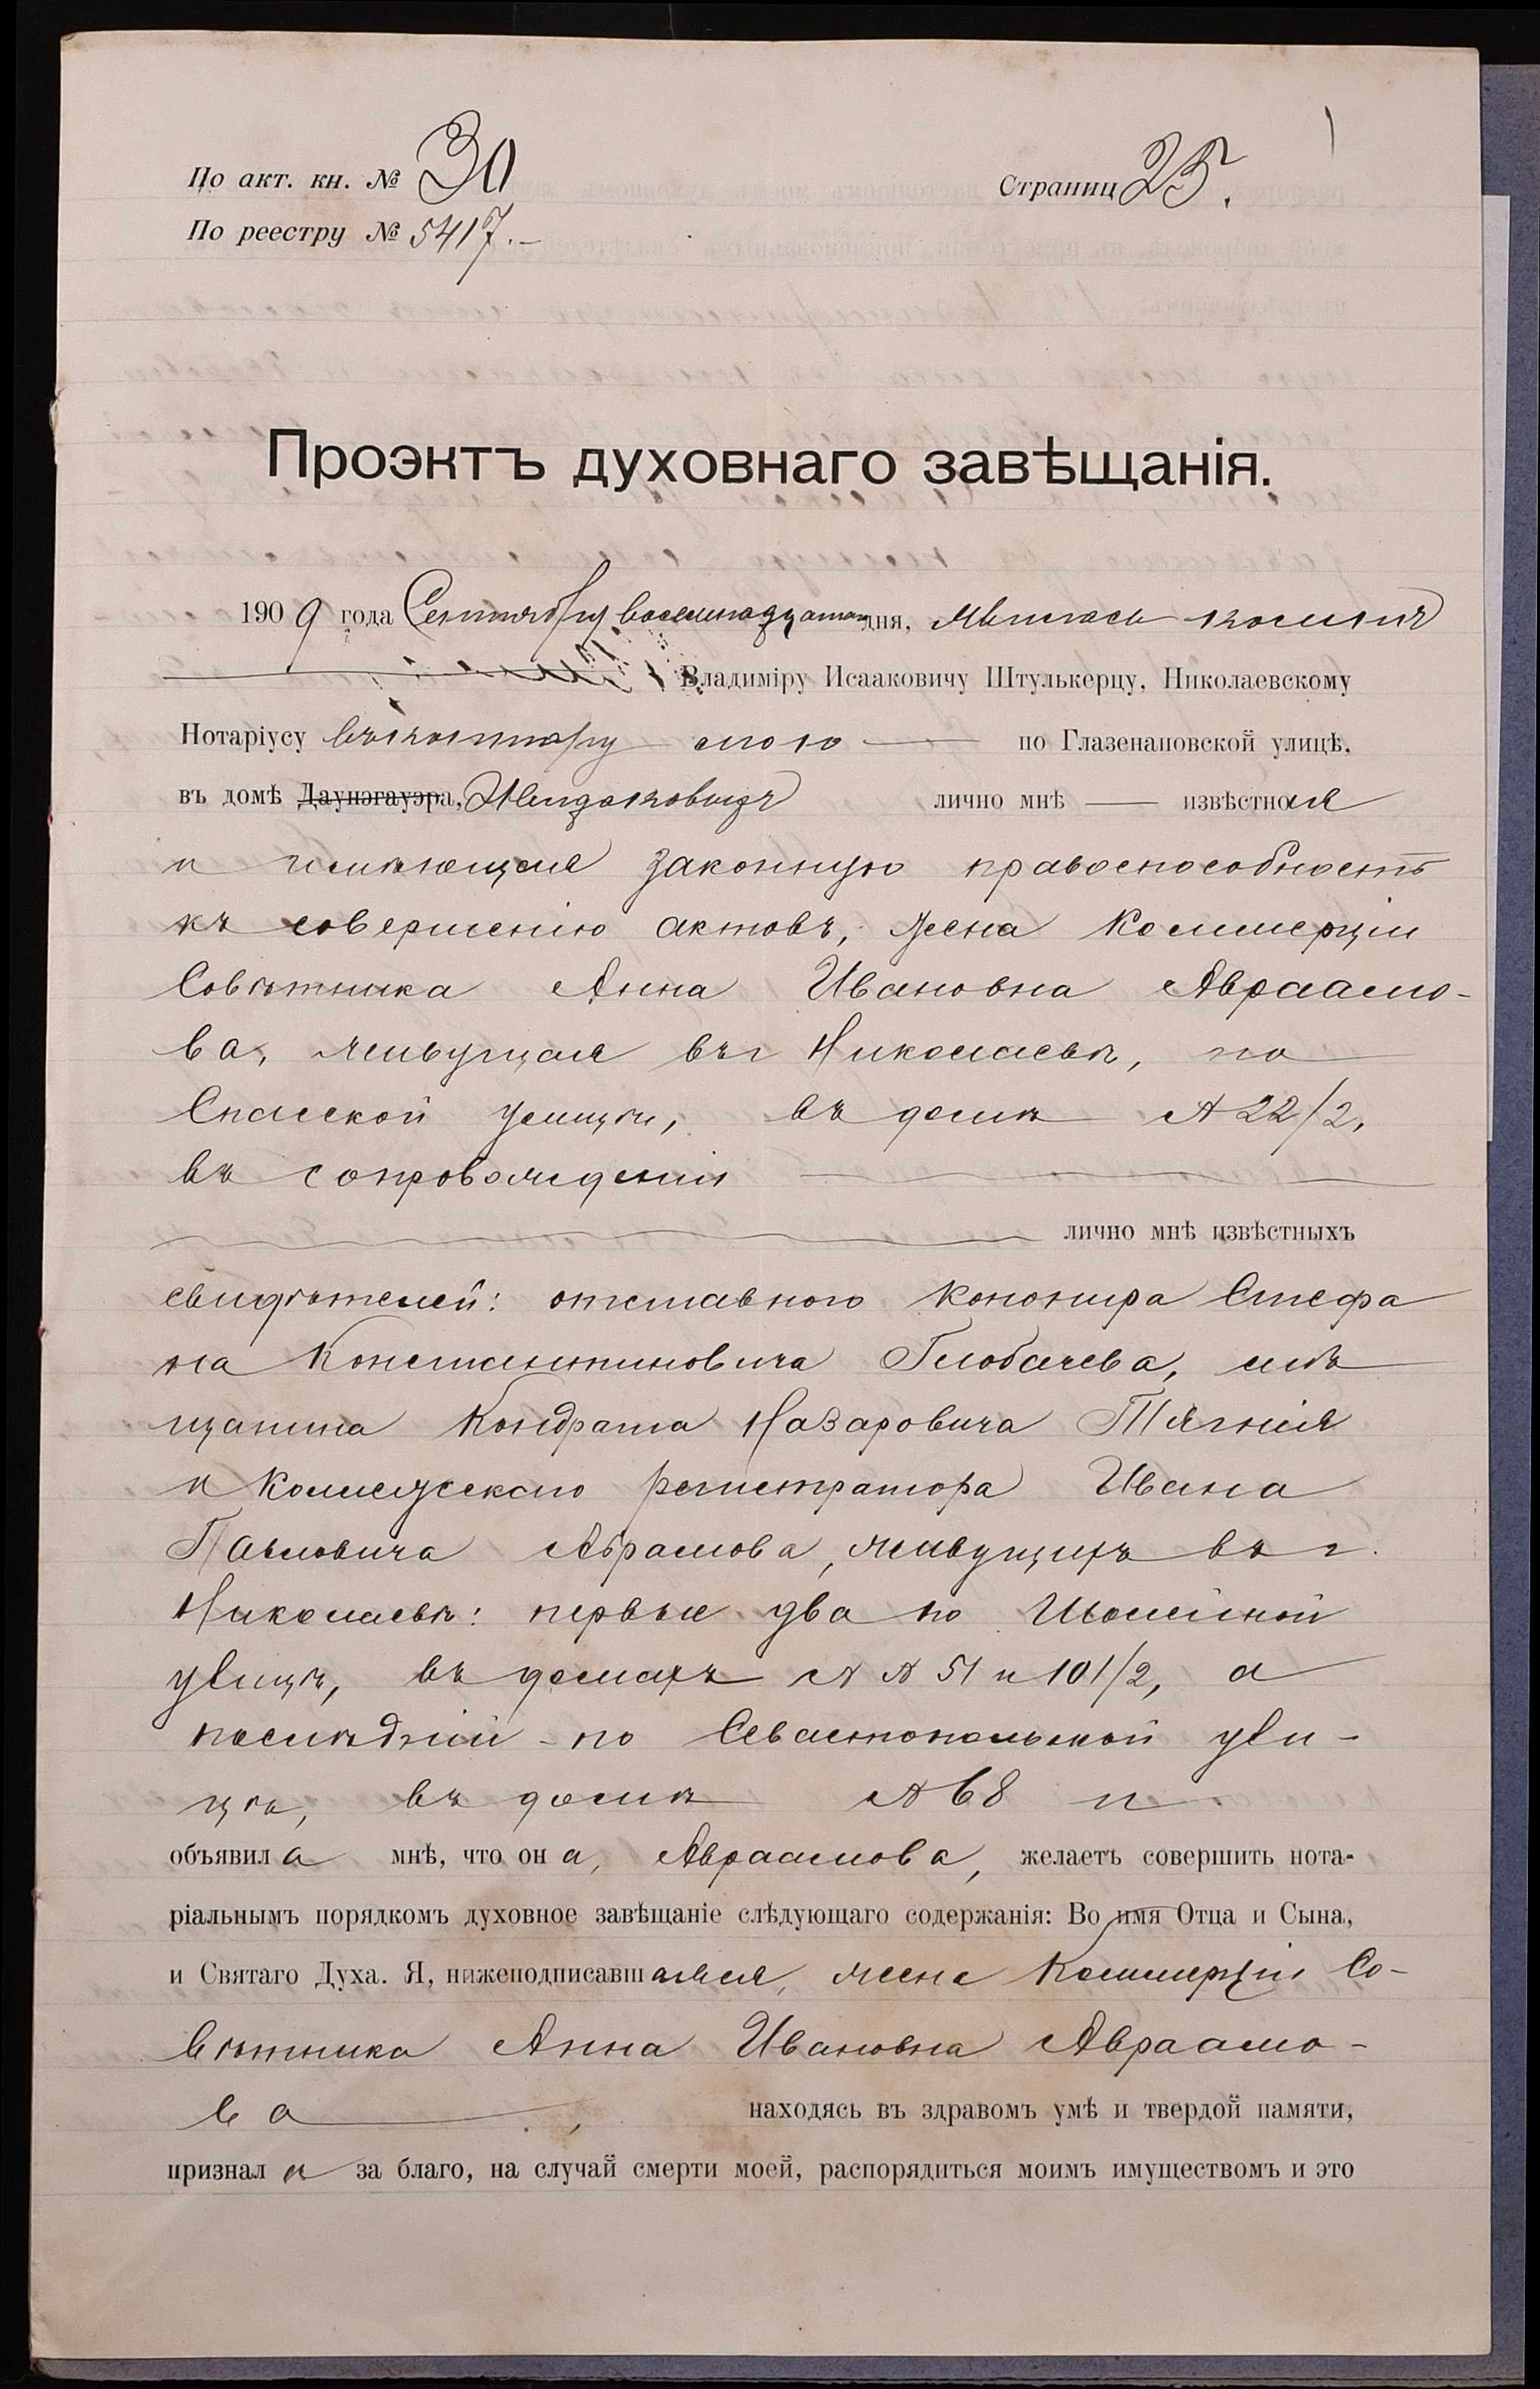 По акт. кн. № 30
Страниц 25.
По реестру № 5417.-
Проэктъ духовнаго завѣщанія.
1909 года Сентября восемнадцатаго дня, явилась ко мнѣ
Владиміру Исааковичу Штулькерцу, Николаевскому
Нотаріусу въ контору мою по Глазенаповской улицѣ,
въ домѣ Даунэгауэра, лично мнѣ — извѣстная
и имѣющая законную правоспособность
къ совершенію актовъ, жена Коммерціи
Совѣтника Анна Ивановна Авраамо-
ва, живущая въ г Николаевѣ, по
Спасской улицѣ, въ домѣ № 22/2,
въ сопровожденіи
лично мнѣ извѣстныхъ
свидѣтелей: отставного канонира Стефа
на Константиновича Глобачева, мѣ
щанина Кондрата Назаровича Тягнія
и Коллежскаго регистратора Ивана
Павловича Абрамова, живущихъ въ г.
Николаевѣ: первые два по Шоссейной
улицѣ, въ домахъ № № 51 и 101/2, а
послѣдній - по Севастопольской ули-
цѣ, въ домѣ № 68 и
объявила мнѣ, что она, Авраамова, желаетъ совершить нота-
ріальнымъ порядкомъ духовное завѣщаніе слѣдующаго содержанія: Во имя Отца и Сына,
и Святаго Духа. Я, нижеподписавшаяся, жена Коммерціи Со-
вѣтника Анна Ивановна Авраамо-
ва, находясь въ здравомъ умѣ и твердой памяти,
признала за благо, на случай смерти моей, распорядиться моимъ имуществомъ и это